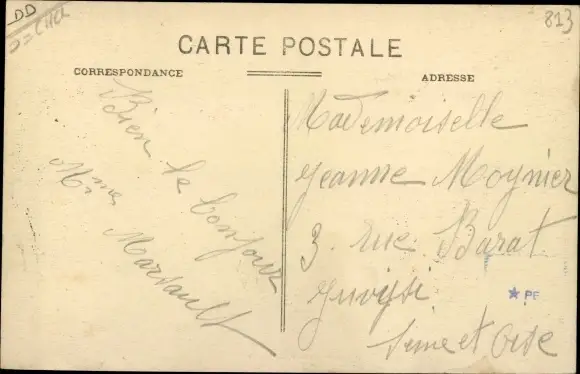 DD
813
CARTE POSTALE
CORRESPONDANCE
ADRESSE
Bien le bonjour
Mme Marsault
Mademoiselle
Jeanne Moynier
3 rue Barat
Juvisi
Seine et Oise
★ PF